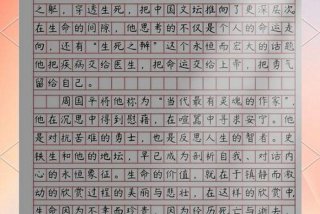 之躯，穿透生死，把中国文坛推向了更深层次
在生命的间隙，他思考的不仅是个人的命运走
向，还有“生死之辩”这个永恒而宏大的话题
他把疾病交给医生，把命运交给上帝，把勇气
留给自己。
周国平将他称为“当代最有灵魂的作家”
他在沉思中得到慰藉，在喧嚣中寻求安宁。他
是对抗苦难的勇士，也是反思人生的智者。史
铁生和他的地坛，早已成为剖析自我、对话内
心的永恒象征。生命的价值，就在于镇静而激
动的欣赏过程的美丽与悲壮，在这样的欣赏中
生命因为不幸而珍贵，因为经历死亡与